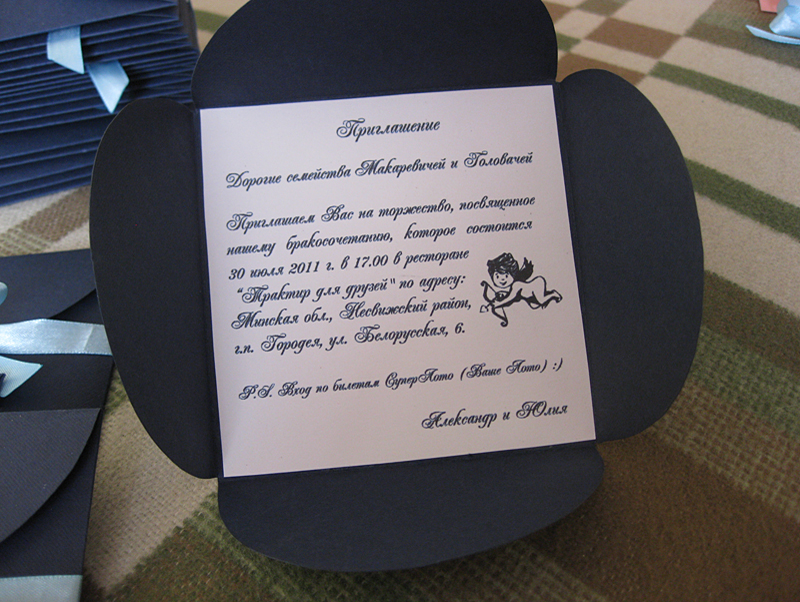 Приглашение
Дорогие семейства Макаревичей и Головачей
Приглашаем Вас на торжество, посвященное
нашему бракосочетанию, которое состоится
30 июля 2011 г. в 17.00 в ресторане
"Трактир для друзей" по адресу:
Минская обл., Несвижский район,
г.п. Городея, ул. Белорусская, 6.
P.S. Вход по билетам СуперЛото (Ваше Лото) :)
Александр и Юлия